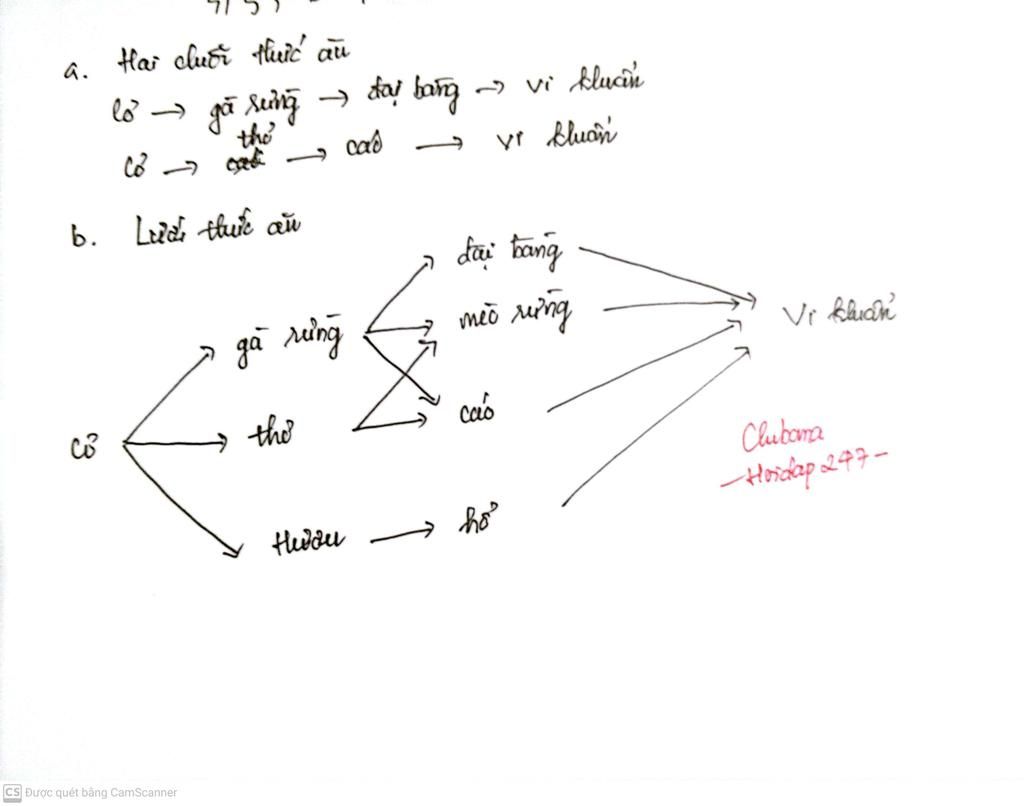 a. Hai chuỗi thức ăn
Cỏ → gà rừng → đại bàng → vi khuẩn
Cỏ → thỏ → cáo → vi khuẩn
b. Lưới thức ăn
đại bàng
mèo rừng
Vi khuẩn
gà rừng
cáo
Cỏ
thỏ
Clubama
- Hoidap247 -
hổ
Hươu
CS Được quét bằng CamScanner